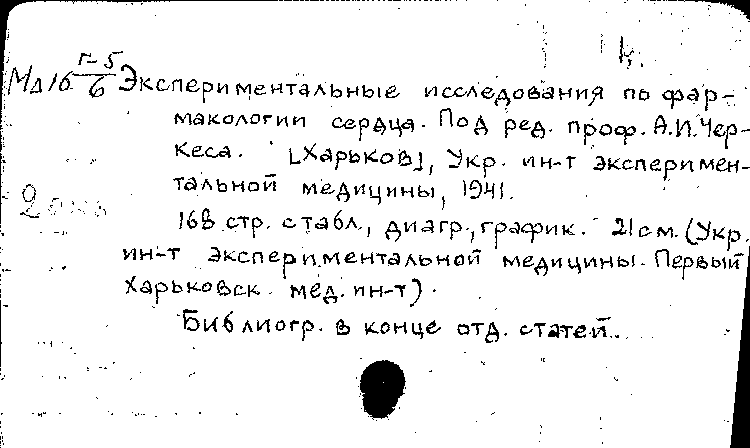 к.
Мд16 г-5/6 Экспериментальные исследования по фар-
макологии сердца. Под ред. проф. А.И.Чер-
кеса. [Харьков], Укр. ин-т эксперимен-
тальной медицины, 1941.
168 стр. с табл., диагр., график. 21 см. (Укр.
ин-т экспериментальной медицины. Первый
Харьковск. мед. ин-т).
Библиогр. в конце отд. статей.